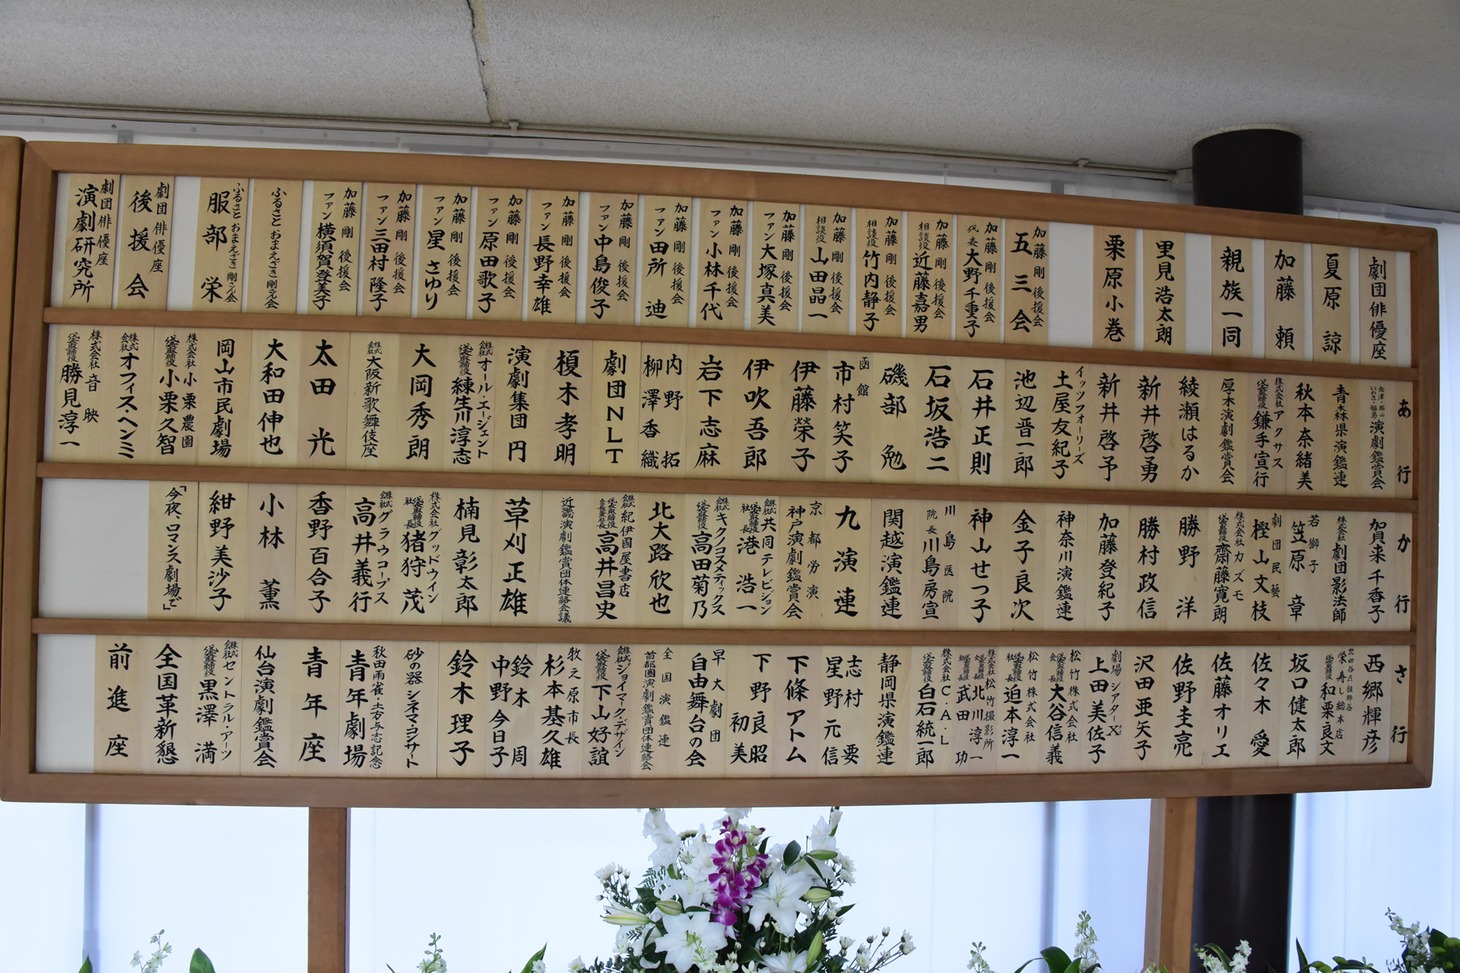 劇団俳優座
夏原諒
加藤頼
親族一同
里見浩太朗
栗原小巻
加藤剛後援会
五三会
加藤剛後援会
代表大野千重子
加藤剛後援会
相談役近藤嘉男
加藤剛後援会
相談役竹内静子
加藤剛後援会
相談役山田晶一
加藤剛後援会
ファン大塚真美
加藤剛後援会
ファン小林千代
加藤剛後援会
ファン田所迪
加藤剛後援会
ファン中島俊子
加藤剛後援会
ファン長野幸雄
加藤剛後援会
ファン原田歌子
加藤剛後援会
ファン星さゆり
加藤剛後援会
ファン三田村隆子
加藤剛後援会
ファン横須賀登美子
ふるさとおまえざき剛志会
ふるさとおまえざき剛志会
服部栄
劇団俳優座
後援会
劇団俳優座
演劇研究所
あ行
演劇鑑賞会
青森県演鑑連
秋本奈緒美
株式会社アクサス
代表取締役鎌手宣行
厚木演劇鑑賞会
綾瀬はるか
新井啓勇
新井啓予
イッツフォーリーズ
土屋友紀子
池辺晋一郎
石井正則
石坂浩二
磯部勉
函館
市村笑子
伊藤榮子
伊吹吾郎
岩下志麻
内野拓
柳澤香織
劇団NLT
榎木孝明
演劇集団円
株式会社オール・エージェント
代表取締役練生川淳志
大岡秀朗
株式会社大阪新歌舞伎座
太田光
大和田伸也
岡山市民劇場
株式会社小栗農園
代表取締役小栗久智
株式会社オフィス・ヘンミ
株式会社音映
代表取締役勝見淳一
か行
賀来千香子
株式会社劇団影法師
若獅子
笠原章
劇団民藝
樫山文枝
株式会社カズモ
代表取締役齋藤寛朗
勝野洋
勝村政信
加藤登紀子
神奈川演鑑連
金子良次
神山せつ子
川島医院
院長川島房宣
関越演鑑連
九演連
京都労演
神戸演劇鑑賞会
共同テレビジョン
港浩一
株式会社キクノコスメティックス
代表取締役高田菊乃
北大路欣也
株式会社紀伊國屋書店
高井昌史
近畿演劇鑑賞団体連絡会議
草刈正雄
楠見彰太郎
株式会社グッドウイン
猪狩茂
株式会社グラウコープス
高井義行
香野百合子
小林薫
紺野美沙子
「今夜、ロマンス劇場で」
さ行
西郷輝彦
栄寿し総本店
代表取締役和栗良文
坂口健太郎
佐々木愛
佐藤オリエ
佐野圭亮
沢田亜矢子
劇場シアターX
上田美佐子
松竹株式会社
大谷信義
松竹株式会社
迫本淳一
株式会社松竹撮影所
北川淳一
武田功
株式会社C・A・L
代表取締役白石統一郎
静岡県演鑑連
志村要
星野元信
下條アトム
下野良昭
初美
早大劇団
自由舞台の会
全国演鑑連
首都圏演劇鑑賞団体連絡会
株式会社ジョイマーク・デザイン
代表取締役下山好誼
牧之原市長
杉本基久雄
鈴木周
中野今日子
鈴木理子
砂の器シネマ・コンサート
秋田雨雀・土方与志記念
青年劇場
青年座
仙台演劇鑑賞会
株式会社セントラル・アーツ
代表取締役黒澤満
全国革新懇
前進座